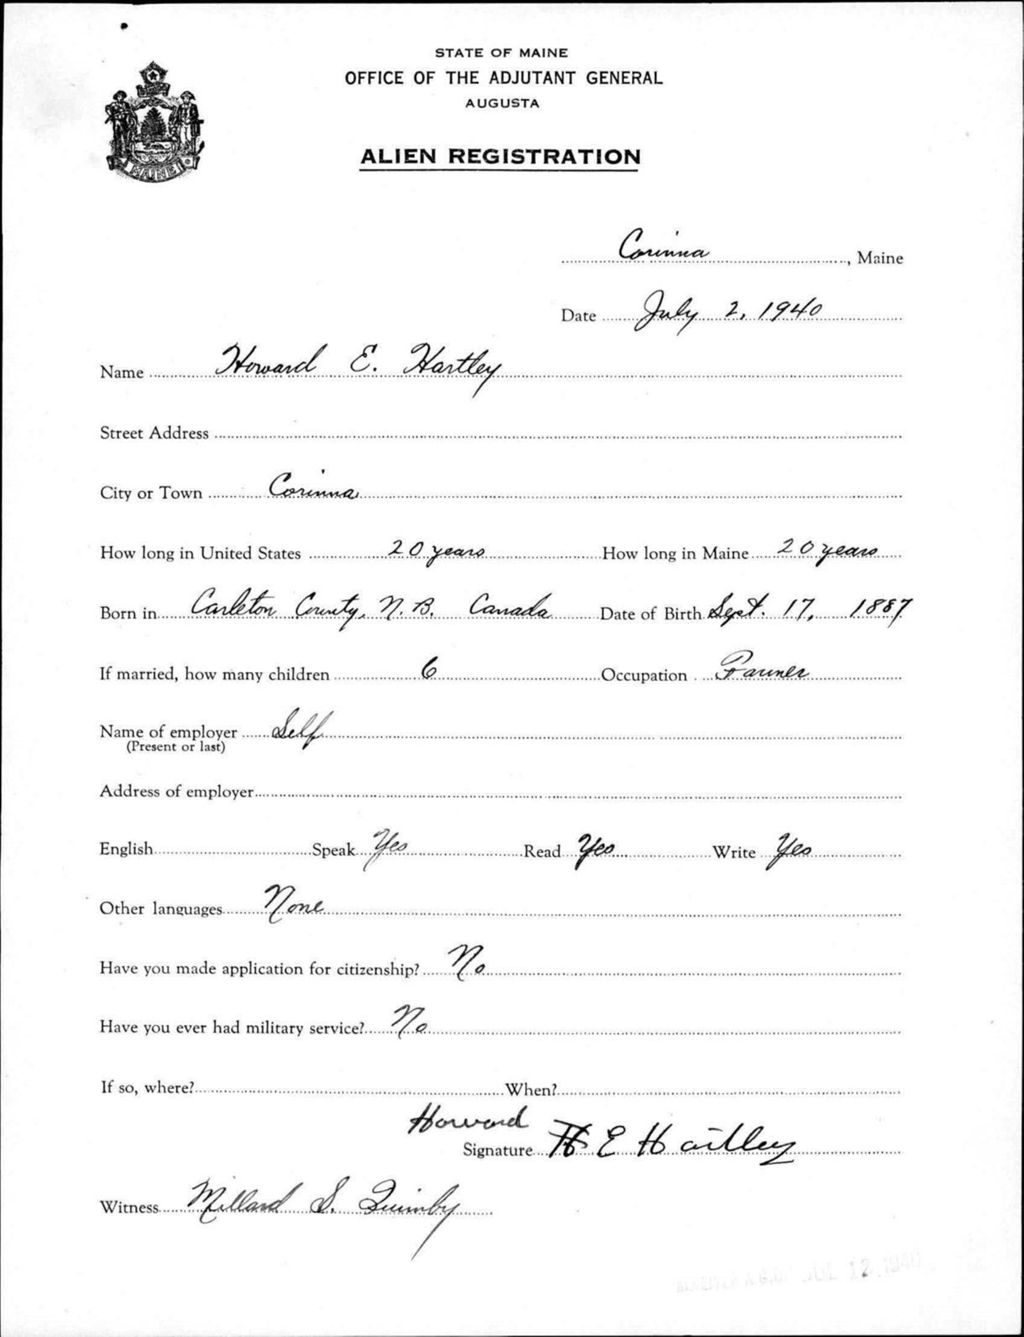 STATE OF MAINE
OFFICE OF THE ADJUTANT GENERAL
AUGUSTA
ALIEN REGISTRATION
MAINE
Corinna, Maine
Date July 2, 1940
Name Howard E. Hartley
Street Address
City or Town Corinna
How long in United States 20 years How long in Maine 20 years
Born in Carleton County, N.B. Canada Date of Birth Sept. 17, 1887
If married, how many children 6 Occupation Farmer
Name of employer Self
(Present or last)
Address of employer
English Speak Yes Read Yes Write Yes
Other languages None
Have you made application for citizenship? No
Have you ever had military service? No
If so, where? When?
Howard
Signature H E Hartley
Witness Millard S. Quimby
A.G.O. JUL 12 1940